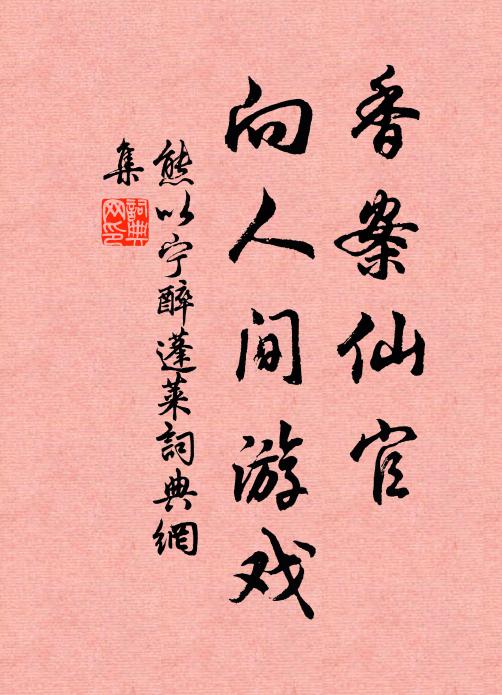 香案仙官
向人间游戏
熊以宁醉蓬莱詞典網
集
詞典
网印